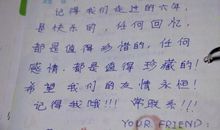 记得我们走过的六年，
是快乐的，任何回忆，
都是值得珍惜的，任何
感情，都是值得珍藏的！
希望我们的友情永恒！
记得我哦!!! 常联系!!!
YOUR FRIEND: